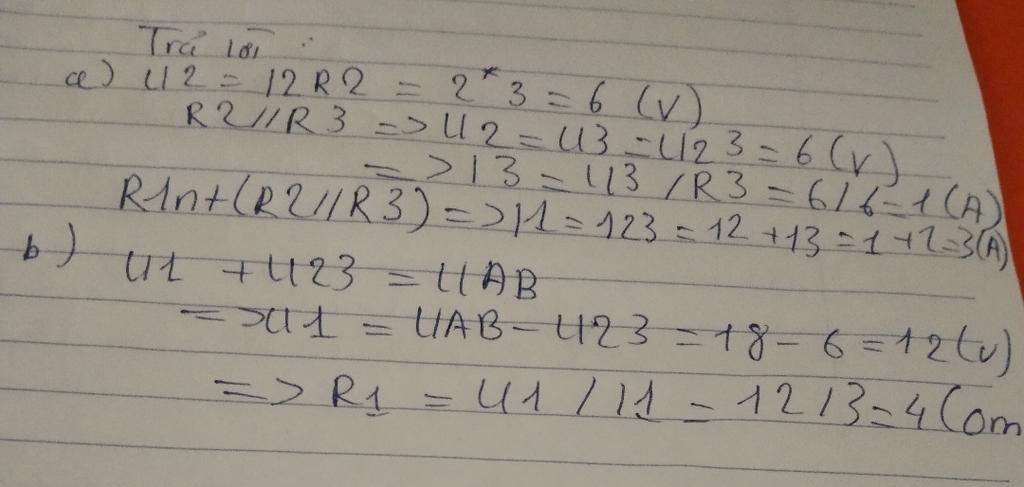 Trả lời :
a) U2 = I2R2 = 2*3 = 6 (V)
R2//R3 => U2 = U3 = U23 = 6 (V)
=> I3 = U3 / R3 = 6/6 = 1 (A)
R1nt(R2//R3) => I1 = I23 = I2 + I3 = 1 + 2 = 3(A)
b) U1 + U23 = UAB
=> U1 = UAB - U23 = 18 - 6 = 12 (V)
=> R1 = U1 / I1 = 12/3 = 4 (om